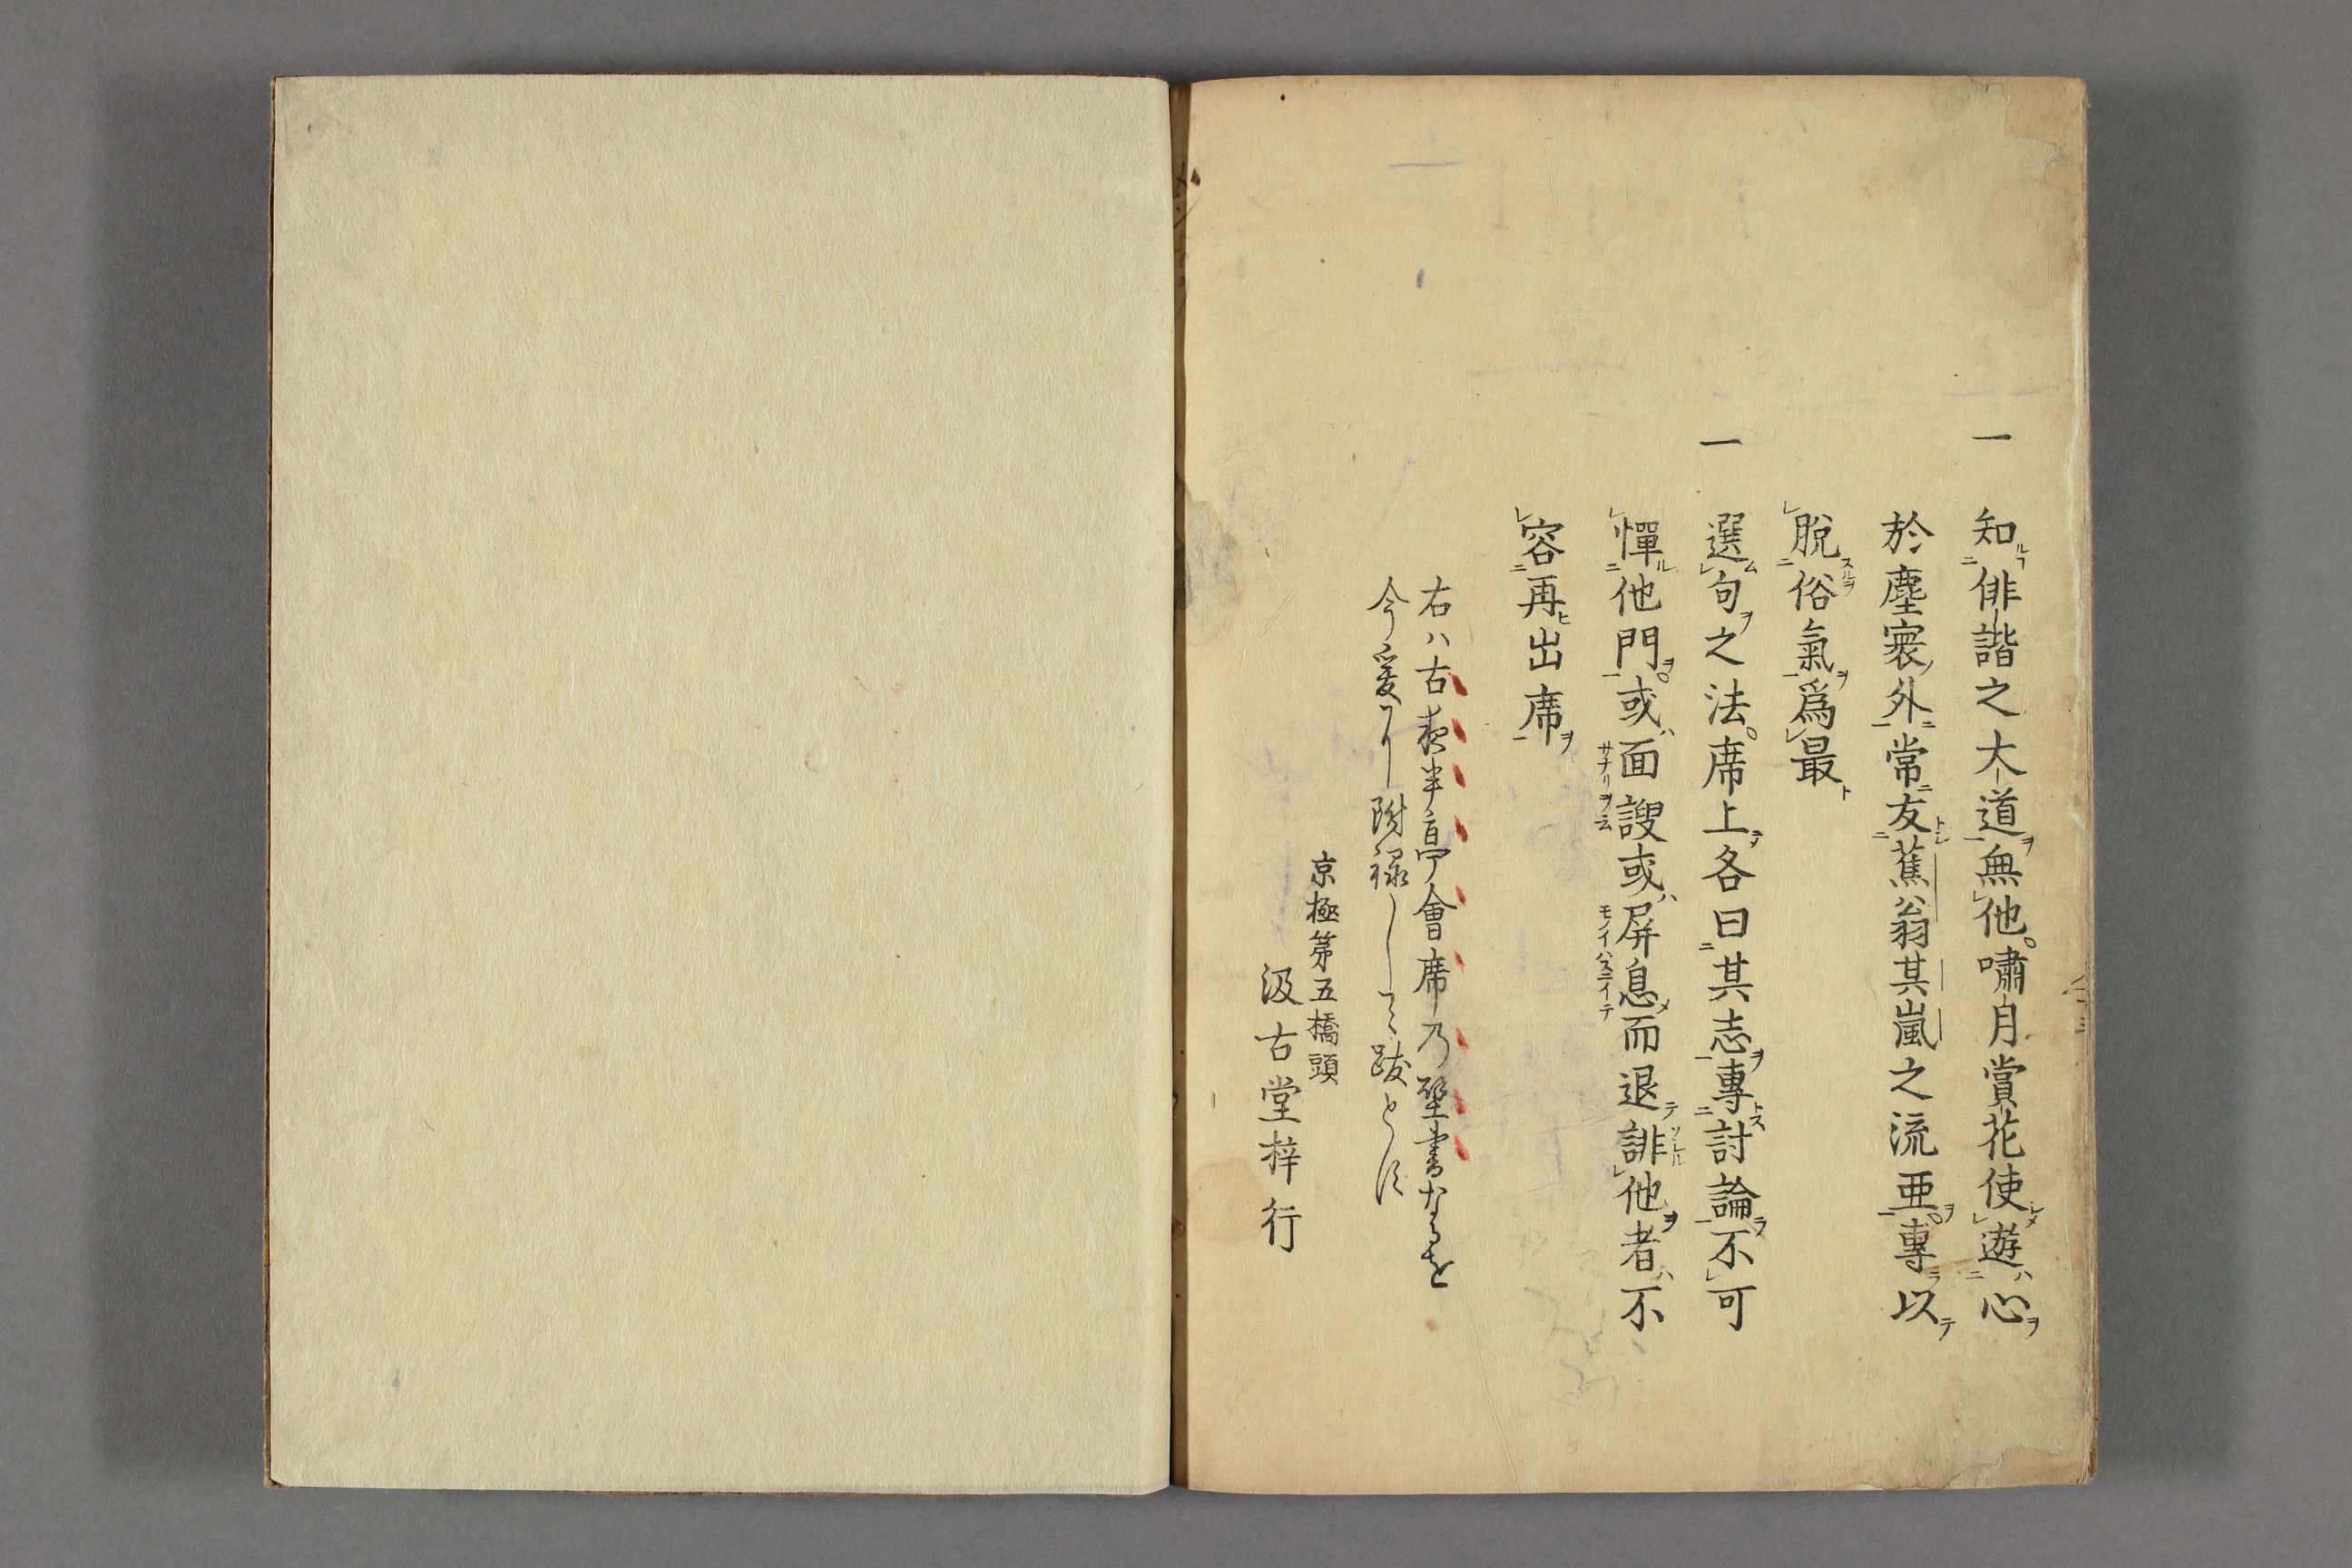 一 知俳諧之大道無他嘯月賞花使遊心
於塵寰外常友蕉翁其嵐之流亜專以
脱俗氣爲最
一 選句之法席上各曰其志專討論不可
憚他門或面謏或屏息而退誹他者不
容再出席
右ハ古夜半亭會席乃壁書なるを
今爰に附禄して跋とす
京極第五橋頭
汲古堂梓行